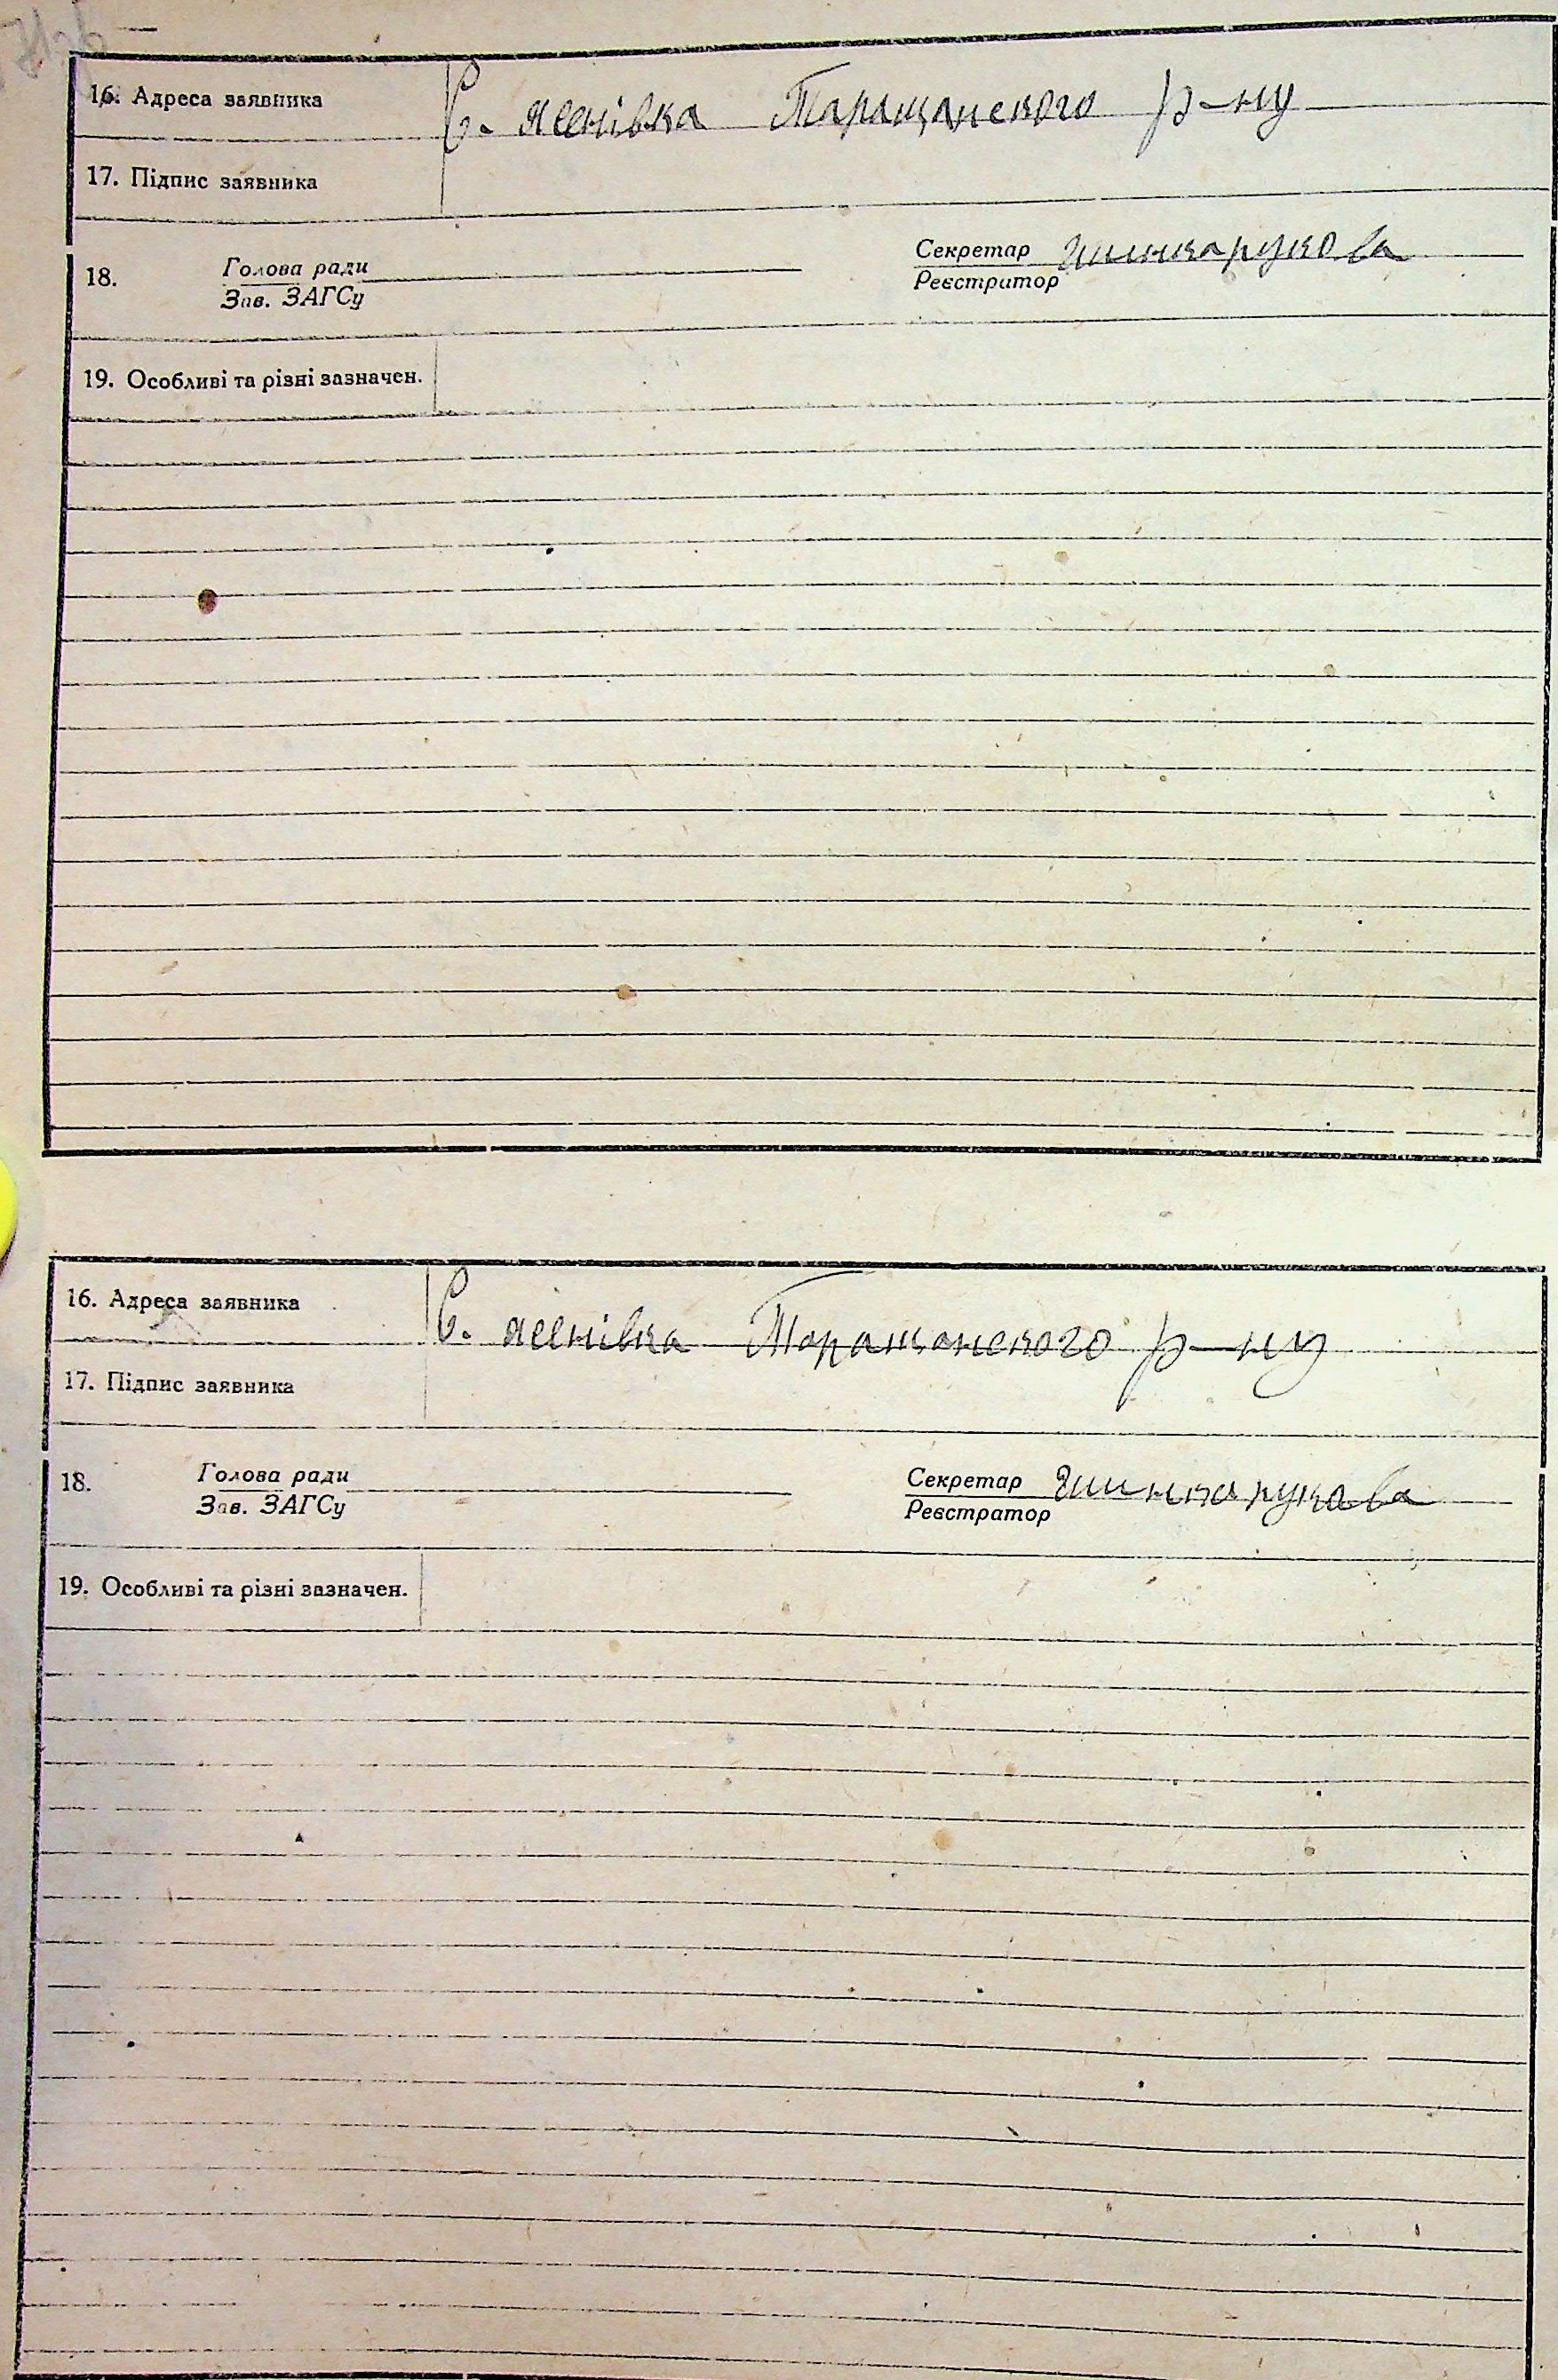 16. Адреса заявника С. Ясенівка Таращанского р-ну
17. Підпис заявника
18. Голова ради Секретар Шинкарукова
Зав. ЗАГСу Реєстратор
19. Особливі та різні зазначен.
16. Адреса заявника С. Ясенівка Таращанского р-ну
17. Підпис заявника
18. Голова ради Секретар Шинкарукова
Зав. ЗАГСу Реєстратор
19. Особливі та різні зазначен.